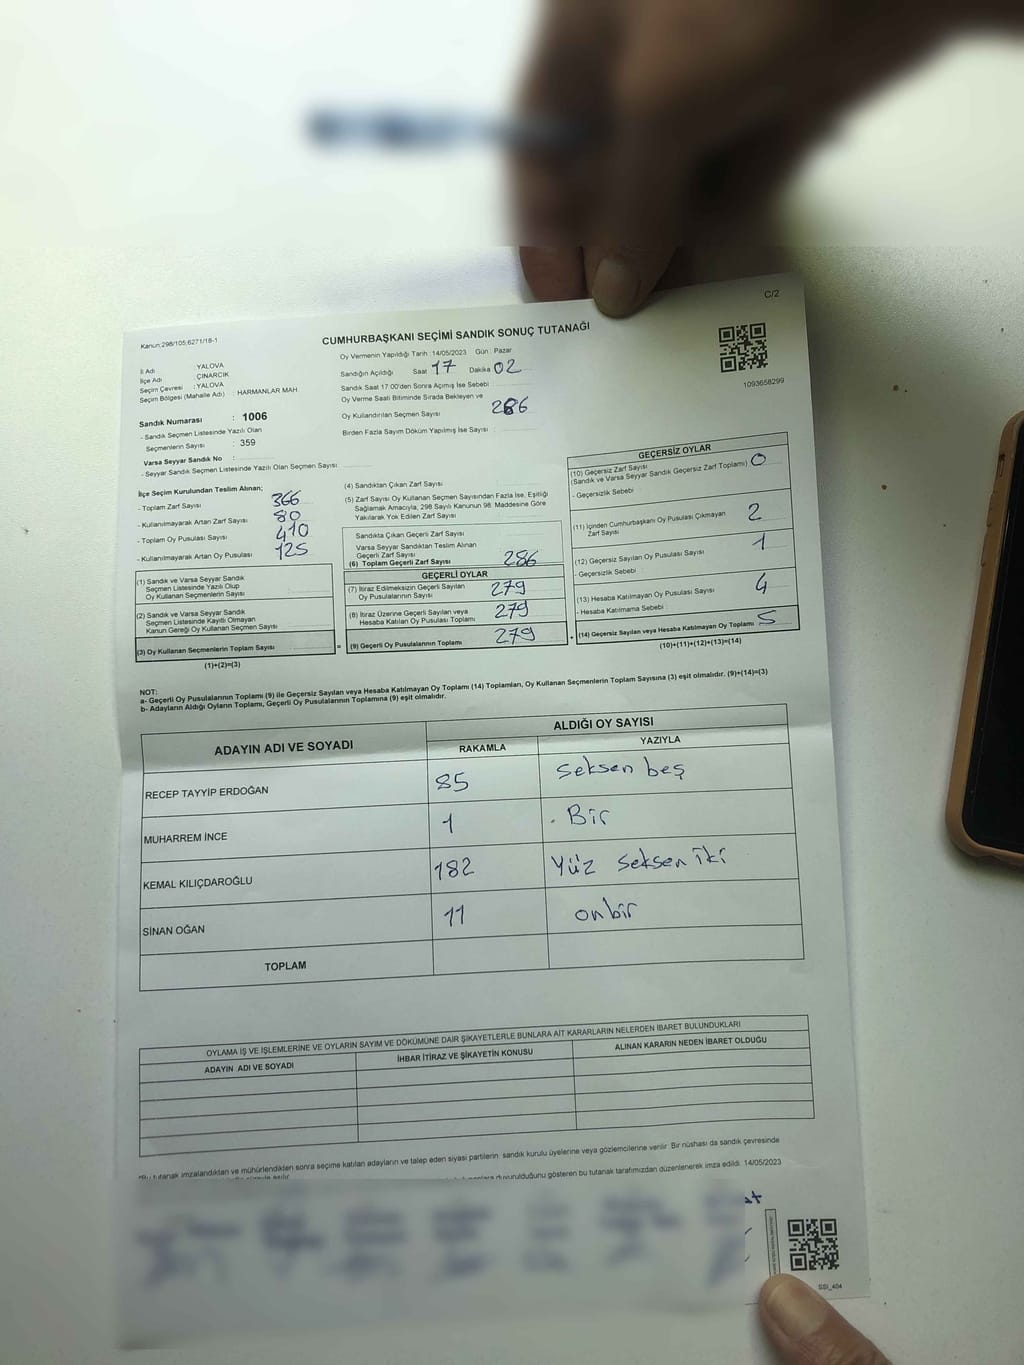 C/2
Kanun:298/105;6271/18-1
CUMHURBAŞKANI SEÇİMİ SANDIK SONUÇ TUTANAĞI
Oy Vermenin Yapıldığı Tarih :14/05/2023 Gün : Pazar
İl Adı : YALOVA
İlçe Adı : ÇINARCIK
Seçim Çevresi : YALOVA
Seçim Bölgesi (Mahalle Adı) : HARMANLAR MAH.
Sandığın Açıldığı Saat 17 Dakika 02
Sandık Saat 17:00'den Sonra Açımış İse Sebebi :
Oy Verme Saati Bitiminde Sırada Bekleyen ve
Oy Kullandırılan Seçmen Sayısı 286
Birden Fazla Sayım Döküm Yapılmış İse Sayısı :
1093658299
Sandık Numarası : 1006
- Sandık Seçmen Listesinde Yazılı Olan
Seçmenlerin Sayısı : 359
Varsa Seyyar Sandık No :
- Seyyar Sandık Seçmen Listesinde Yazılı Olan Seçmen Sayısı:
İlçe Seçim Kurulundan Teslim Alınan;
- Toplam Zarf Sayısı 366
- Kullanılmayarak Artan Zarf Sayısı 80
- Toplam Oy Pusulası Sayısı 410
- Kullanılmayarak Artan Oy Pusulası 125
(1) Sandık ve Varsa Seyyar Sandık
Seçmen Listesinde Yazılı Olup
Oy Kullanan Seçmen Sayısı
(2) Sandık ve Varsa Seyyar Sandık
Seçmen Listesinde Kayıtlı Olmayan
Kanun Gereği Oy Kullanan Seçmen Sayısı
(3) Oy Kullanan Seçmenlerin Toplam Sayısı
(1)+(2)=(3)
(4) Sandıktan Çıkan Zarf Sayısı
(5) Zarf Sayısı Oy Kullanan Seçmen Sayısından Fazla İse, Eşitliği
Sağlamak Amacıyla, 298 Sayılı Kanunun 98. Maddesine Göre
Yakılarak Yok Edilen Zarf Sayısı
Sandıkta Çıkan Geçerli Zarf Sayısı
Varsa Seyyar Sandıktan Teslim Alınan
Geçerli Zarf Sayısı
(6) Toplam Geçerli Zarf Sayısı 286
GEÇERLİ OYLAR
(7) İtiraz Edilmeksizin Geçerli Sayılan
Oy Pusulalarının Sayısı 279
(8) İtiraz Üzerine Geçerli Sayılan veya
Hesaba Katılan Oy Pusulası Toplamı 279
= (9) Geçerli Oy Pusulalarının Toplamı 279
GEÇERSİZ OYLAR
(10) Geçersiz Zarf Sayısı
(Sandık ve Varsa Seyyar Sandık Geçersiz Zarf Toplamı) 0
- Geçersizlik Sebebi
(11) İçinden Cumhurbaşkanı Oy Pusulası Çıkmayan
Zarf Sayısı 2
(12) Geçersiz Sayılan Oy Pusulası Sayısı 1
- Geçersizlik Sebebi
(13) Hesaba Katılmayan Oy Pusulası Sayısı 4
- Hesaba Katılmama Sebebi :
+ (14) Geçersiz Sayılan veya Hesaba Katılmayan Oy Toplamı 5
(10)+(11)+(12)+(13)=(14)
NOT:
a- Geçerli Oy Pusulalarının Toplamı (9) ile Geçersiz Sayılan veya Hesaba Katılmayan Oy Toplamı (14) Toplamları, Oy Kullanan Seçmenlerin Toplam Sayısına (3) eşit olmalıdır. (9)+(14)=(3)
b- Adayların Aldığı Oyların Toplamı, Geçerli Oy Pusulalarının Toplamına (9) eşit olmalıdır.
ADAYIN ADI VE SOYADI ALDIĞI OY SAYISI
RAKAMLA YAZIYLA
RECEP TAYYİP ERDOĞAN 85 Seksen beş
MUHARREM İNCE 1 Bir
KEMAL KILIÇDAROĞLU 182 Yüz seksen iki
SİNAN OĞAN 11 onbir
TOPLAM
OYLAMA İŞ VE İŞLEMLERİNE VE OYLARIN SAYIM VE DÖKÜMÜNE DAİR ŞİKAYETLERLE BUNLARA AİT KARARLARIN NELERDEN İBARET BULUNDUKLARI
ADAYIN ADI VE SOYADI İHBAR İTİRAZ VE ŞİKAYETİN KONUSU ALINAN KARARIN NEDEN İBARET OLDUĞU
*Bu tutanak imzalandıktan ve mühürlendikten sonra seçime katılan adayların ve talep eden siyasi partilerin sandık kurulu üyelerine veya gözlemcilerine verilir. Bir nüshası da sandık çevresinde
duyurulduğunu gösteren bu tutanak tarafımızdan düzenlenerek imza edildi. 14/05/2023
SSİ_404